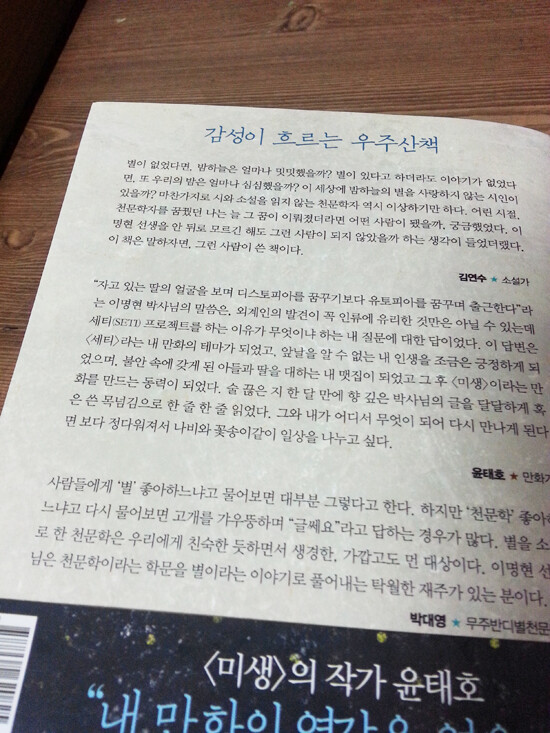 감성이 흐르는 우주산책
별이 없었다면, 밤하늘은 얼마나 밋밋했을까? 별이 있다고 하더라도 이야기가 없었다
면, 또 우리의 밤은 얼마나 심심했을까? 이 세상에 밤하늘의 별을 사랑하지 않는 시인이
있을까? 마찬가지로 시와 소설을 읽지 않는 천문학자 역시 이상하기만 하다. 어린 시절,
천문학자를 꿈꿨던 나는 늘 그 꿈이 이뤄졌더라면 어떤 사람이 됐을까, 궁금했었다. 이
명현 선생을 안 뒤로 모르긴 해도 그런 사람이 되지 않았을까 하는 생각이 들었더랬다.
이 책은 말하자면, 그런 사람이 쓴 책이다.
김연수 ★ 소설가
“자고 있는 딸의 얼굴을 보며 디스토피아를 꿈꾸기보다 유토피아를 꿈꾸며 출근한다”라
는 이명현 박사님의 말씀은, 외계인의 발견이 꼭 인류에 유리한 것만은 아닐 수 있는데
세티(SETI) 프로젝트를 하는 이유가 무엇이냐 하는 내 질문에 대한 답이었다. 이 답변은
〈세티〉라는 내 만화의 테마가 되었고, 앞날을 알 수 없는 내 인생을 조금은 긍정하게 되
었으며, 불안 속에 갖게 된 아들과 딸을 대하는 내 맷집이 되었고 그 후 〈미생〉이라는 만
화를 만드는 동력이 되었다. 술 끊은 지 한 달 만에 향 깊은 박사님의 글을 달달하게 혹
은 쓴 목넘김으로 한 줄 한 줄 읽었다. 그와 내가 어디서 무엇이 되어 다시 만나게 된다
면 보다 정다워져서 나비와 꽃송이같이 일상을 나누고 싶다.
윤태호 ★ 만화가
사람들에게 ‘별’ 좋아하느냐고 물어보면 대부분 그렇다고 한다. 하지만 ‘천문학’ 좋아하
느냐고 다시 물어보면 고개를 가우뚱하며 “글쎄요”라고 답하는 경우가 많다. 별을 소
로 한 천문학은 우리에게 친숙한 듯하면서 생경한, 가깝고도 먼 대상이다. 이명현 선
님은 천문학이라는 학문을 별이라는 이야기로 풀어내는 탁월한 재주가 있는 분이다.
박대영 ★ 무주반디별천문
〈미생〉의 작가 윤태호
“내 만화의 영감은